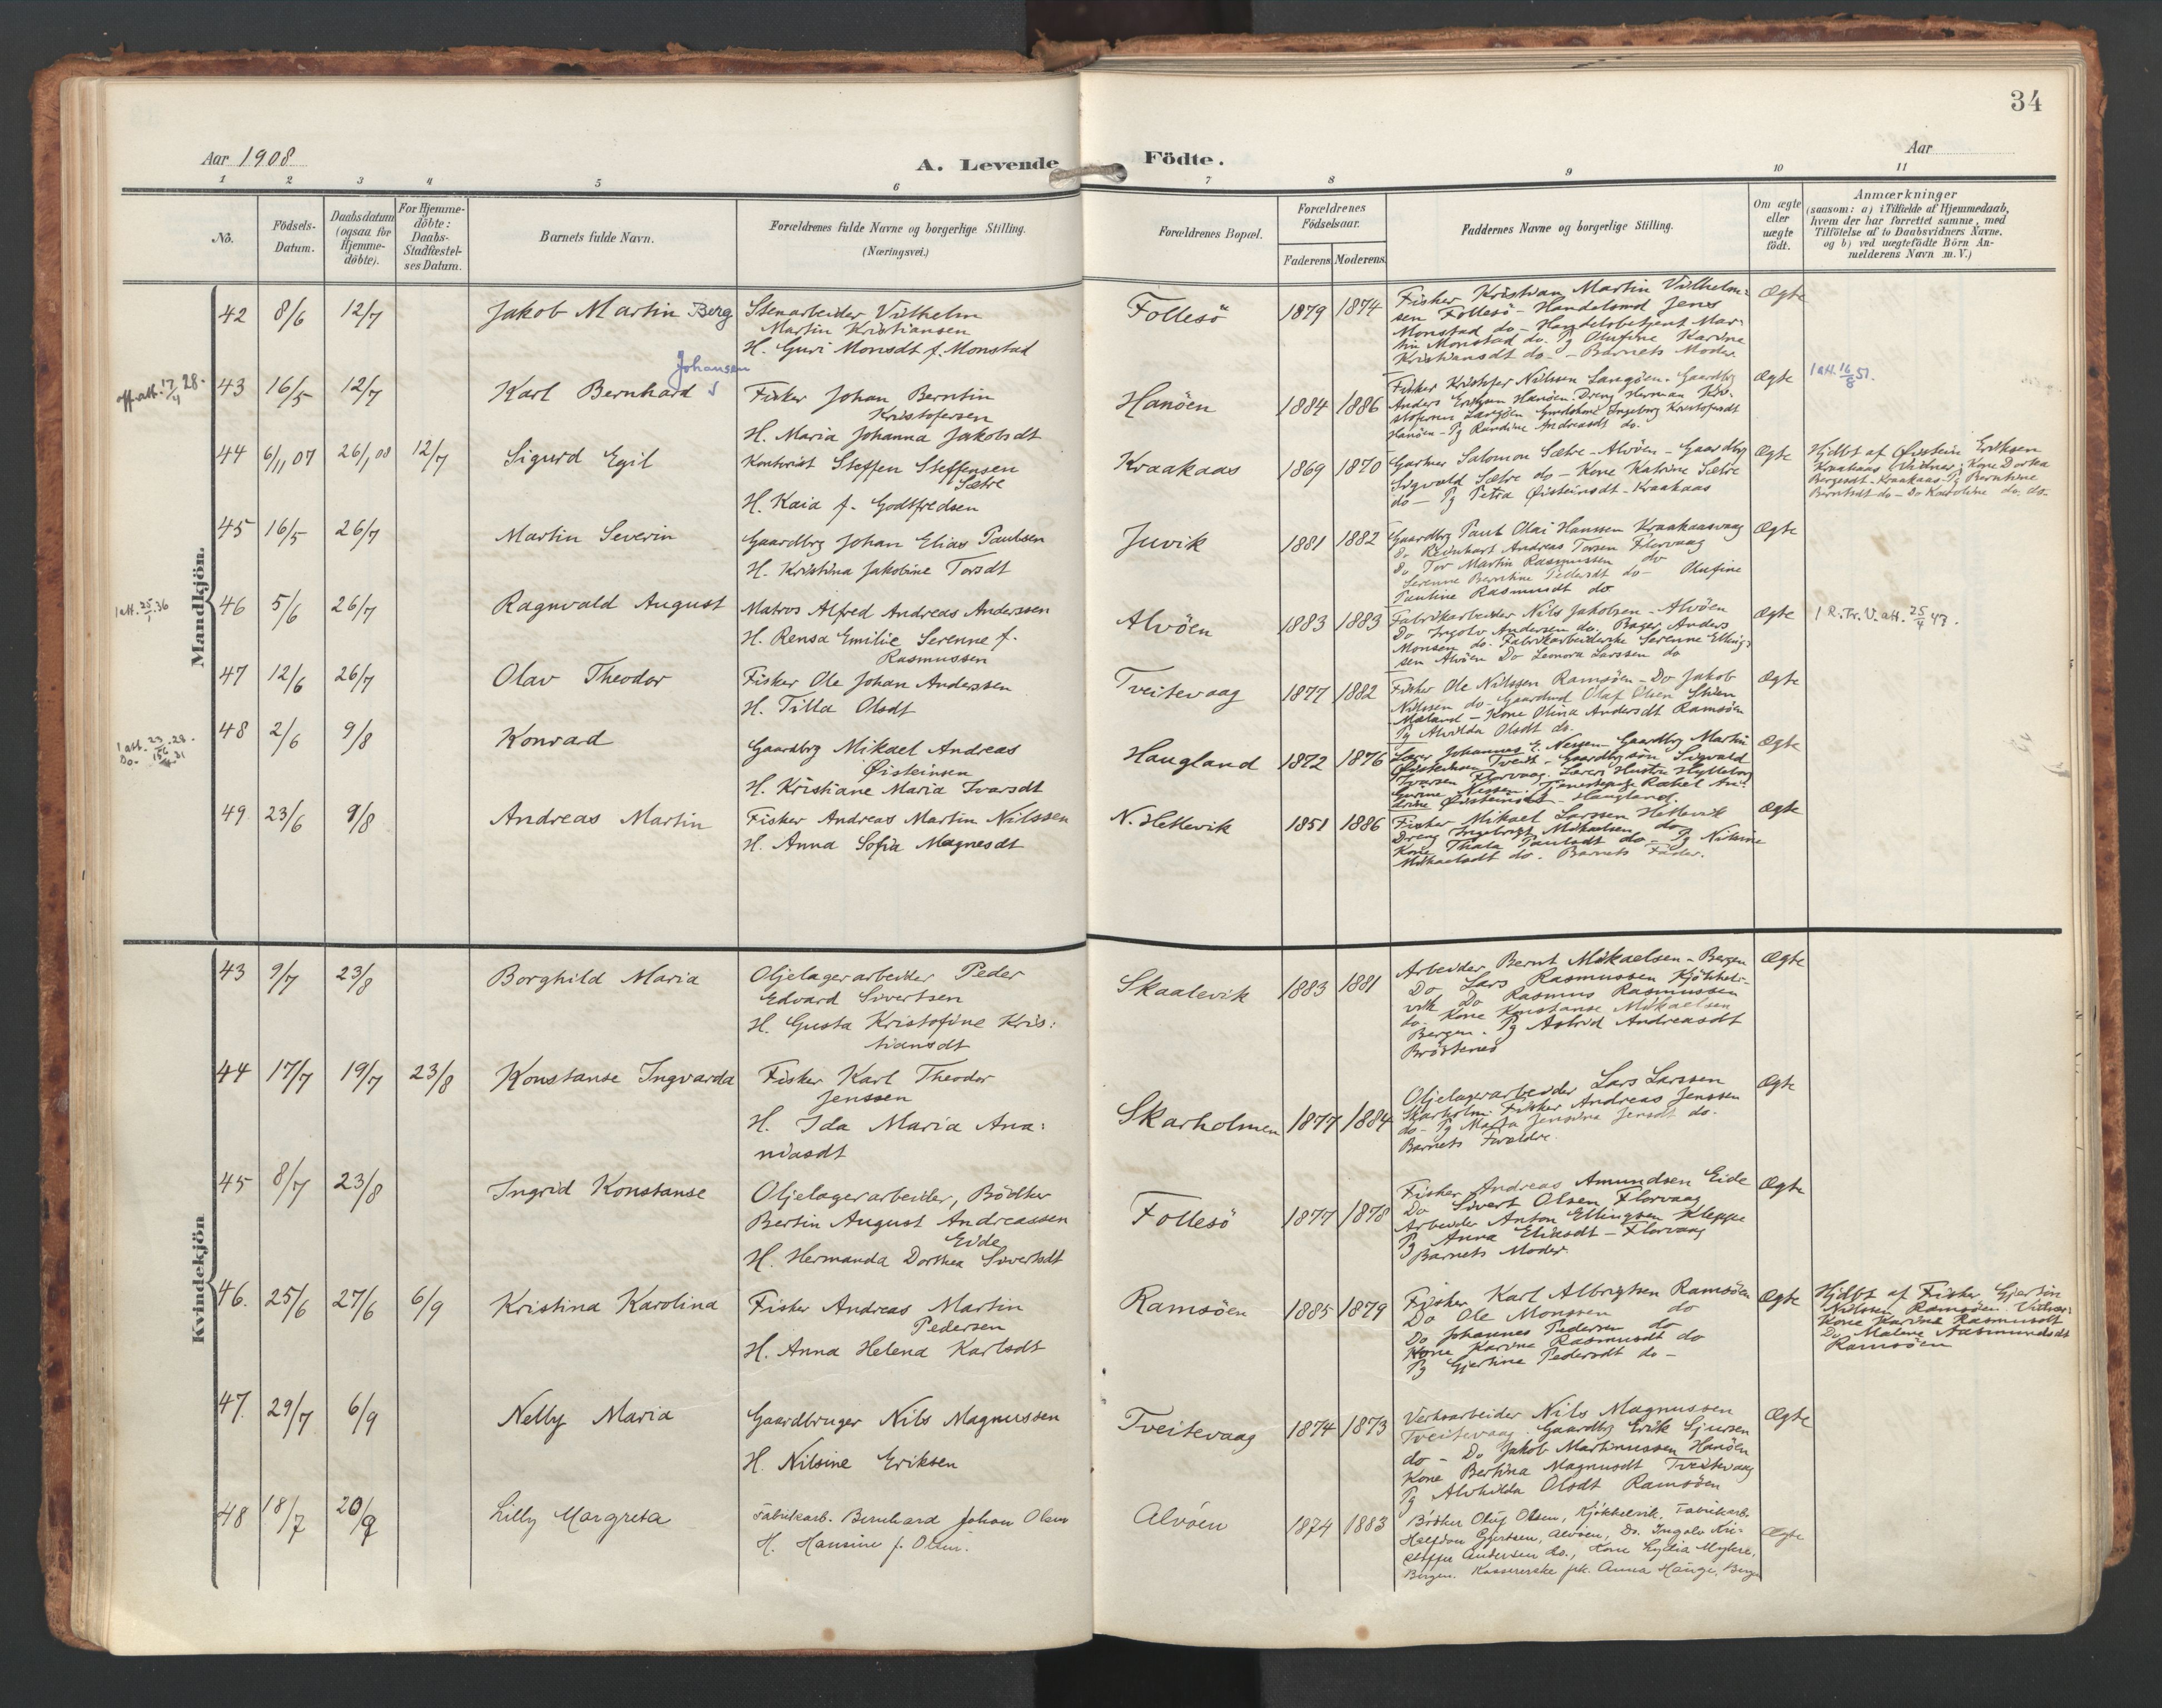 34
Aar 1908
A. Levende Födte.
Aar
1 2 3 4 5 6 7 8 9 10 11
No.
Födsels-Datum.
Daabsdatum (ogsaa for Hjemme-döbte).
For Hjemme-döbte: Daabs-Stadfæstel-ses Datum.
Barnets fulde Navn.
Forældrenes fulde Navne og borgerlige Stilling.
(Næringsvei.)
Forældrenes Bopæl.
Forældrenes Födselsaar.
Faderens Moderens
Faddernes Navne og borgerlige Stilling.
Om ægte eller uægte födt.
Anmærkninger
(saasom: a) i Tilfælde af Hjemmedaab, hvem der har forrettet samme, med Tilföielse af to Daabsvidners Navne, og b) ved uægtefödte Börn An-melderens Navn m. V.)
Mandkjön.
42 8/6 12/7 Jakob Martin Berg
Stenarbeider Vilhelm
Martin Kristiansen
H. Guri Monsdt f. Monstad
Follesö 1879 1874
Fisker Kristian Martin Vilhelm-
sen Follesö - Handelsmd Jens
Monstad do - Handelsbetjent Mar-
tin Monstad do. Pg Olufine Karine
Kristiansdt do - Barnets Moder
Ægte
43 16/5 12/7 Karl Bernhard Johansen
Fisker Johan Berntin
Kristofersen
H. Maria Johanna Jakobsdt
Hanöen 1884 1886
Fisker Kristofer Nilssen Langöen. Gaardbrg
Anders Eriksen Hanöen. Dreng Herman Kri-
stofersen Langöen Ingeborg Kristofersdt
Hanöen - Pg Randine Andreasdt do.
Ægte
1 att. 16/8 51.
44 6/11 07 26/1 08 12/7 Sigurd Egil
Kontorist Steffen Steffensen
Sætre
H. Kaia f. Godtfredsen
Kraakaas 1869 1870
Gartner Salomon Sætre - Alvöen - Gaardbrg
Sigvald Sætre do - Kone Katrine Sætre
do - Pg Petra Øisteinsdt - Kraakaas
Ægte
Hjdbt af Øistein Eriksen
Kraakaas Vidner: Kone Dortea
Bergesdt - Kraakaas - Pg Berntine
Berntsdt do - Do Karoline do. do.
45 16/5 26/7 Martin Severin
Gaardbrg Johan Elias Paulsen
H. Kristina Jakobine Torsdt
Juvik 1881 1882
Gaardbrg Paul Olai Hanssen Kraakaasvaag
Do Reinhart Andreas Torsen Florvaag
Do Tor Martin Rasmussen do
Serenne Berntine Pedersdt do - Olufine
Pauline Rasmusdt do
Ægte
1 att. 25/1 36
46 5/6 26/7 Ragnvald August
Matros Alfred Andreas Anderssen
H. Rensa Emilie Serenne f.
Rasmussen
Alvöen 1883 1883
Fabrikarbeider Nils Jakobsen - Alvöen
Do Ingolv Andersen do. Bager Anders
Monsen do. Fabrikarbeiderske Serenne Elling-
sen Alvöen Do Leonora Larssen do
Ægte
1 R.Tr.V.att. 25/4 43.
47 12/6 26/7 Olav Theodor
Fisker Ole Johan Anderssen
H. Tilla Olsdt
Tveitevaag 1877 1882
Fisker Ole Nilssen Ramsöen - Do Jakob
Nilssen do - Gaardmd Olaf Olsen Skien
Mæland - Kone Olina Andersdt Ramsöen
Pg Alvilda Olsdt do.
Ægte
48 2/6 9/8 Konrad
Gaardbrg Mikael Andreas
Øisteinsen
H. Kristiane Maria Ivarsdt
Haugland 1872 1876
Lærer Johannes E. Nessen - Gaardbrg Martin
Øisteinsen Tveit - Gaardbrgsön Sigvald
Ivarsen Florvaag. Lærers Hustru Hylleborg
Gurine Nessen. Tjenestepige Rakel An-
drine Øisteinsdt - Haugland.
Ægte
49 23/6 9/8 Andreas Martin
Fisker Andreas Martin Nilssen
H. Anna Sofia Magnesdt
N. Hellevik 1851 1886
Fisker Mikael Larssen Hellevik
Dreng Ingebrigt Mikaelsen do
Kone Thala Paulsdt do - Pg Nilsine
Mikaelsdt do. Barnets Fader.
Ægte
Kvindekjön
43 9/7 23/8 Borghild Maria
Oljelagerarbeider Peder
Edvard Sivertsen
H. Gusta Kristofine Kris:
tiansdt
Skaalevik 1883 1881
Arbeider Bernt Mikaelsen - Bergen
Do Lars Rasmussen Kjökkel-
vik Do Rasmus Rasmussen
do. Kone Konstanse Mikaelsen
Bergen. Pg Astrid Andreasdt
Bröstenes
Ægte
44 17/7 19/7 23/8 Konstanse Ingvarda
Fisker Karl Theodor
Jenssen
H. Ida Maria Ana:
niasdt
Skarholmen 1877 1884
Oljelagerarbeider Lars Larssen
Skarholm. Fisker Andreas Jenssen
do - Pg Marta Jensina Jensdt do.
Barnets Forældre.
Ægte
45 8/7 23/8 Ingrid Konstanse
Oljelagerarbeider, Bödker
Bertin August Andreassen
Eide
H. Hermanda Dorthea Sivertsdt
Follesö 1877 1878
Fisker Andreas Amundsen Eide
Do Sivert Olsen Florvaag
Arbeider Anton Ellingsen Kleppe
Pg Anna Eliasdt - Florvaag
Barnets Moder.
Ægte
46. 25/6 27/6 6/9 Kristina Karolina
Fisker Andreas Martin
Pedersen
H. Anna Helena Karlsdt
Ramsöen 1885 1879
Fisker Karl Albrigtsen Ramsöen
Do Ole Monssen do
Do Johannes Pedersen do
Kone Karina Rasmusdt do
Pg Gjertine Pedersdt do -
Ægte
Hjdbt af Fisker Gjertin
Nilssen Ramsöen. Vidner:
Kone Karina Rasmusdt
Do Malene Aasmundsdt
Ramsöen
47. 29/7 6/9 Nelly Maria
Gaardbruger Nils Magnussen
H. Nilsine Eriksen
Tveitevaag 1874 1873
Verksarbeider Nils Magnussen
Tveitevaag. Gaardbrg Erik Sjursen
do - Do Jakob Martinussen Hanöen
Kone Bertina Magnusdt Tveitevaag
Pg Alvhilda Olsdt Ramsöen
Ægte
48 18/7 20/9 Lilly Margreta
Fabrikarb. Bernhard Johan Olsen
H. Hansine f. Olsen.
Alvöen 1874 1883
Bödker Oluf Olsen, Kjökkelvik. Fabrikarb.
Halfdan Gjertsen, Alvöen, Do. Ingolv Kri-
stoffer Andersen do., Kone Lydia Myhre,
Bergen. Kassererske frk. Anna Hauge, Bergen
Ægte